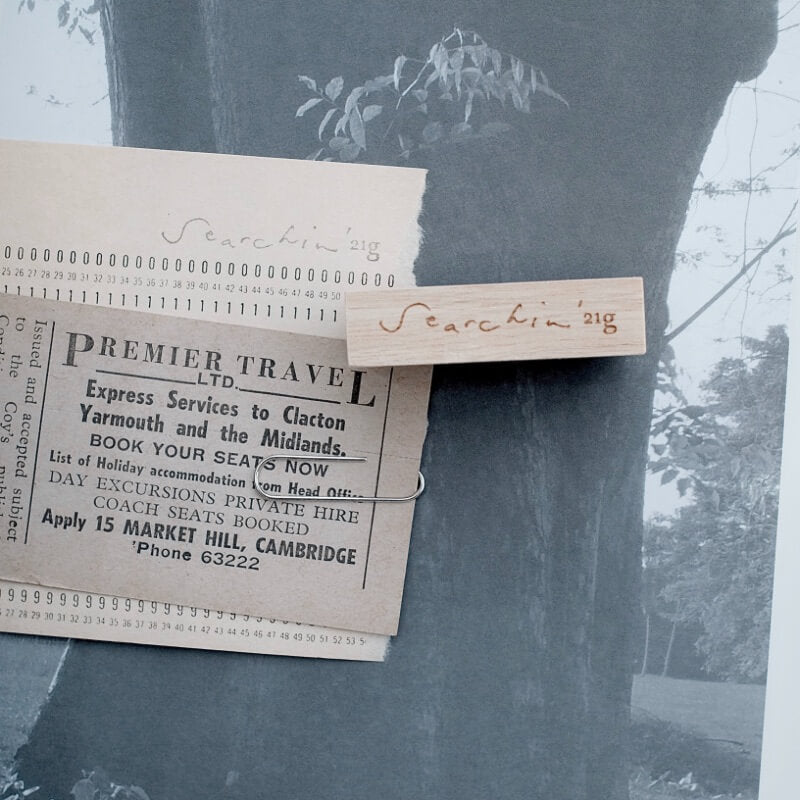 Searchin' 21g
0 0 0 0 0 0 0 0 0 0 0 0 0 0 0 0 0 0 0 0 0 0 0 0 0 0 0
25 26 27 28 29 30 31 32 33 34 35 36 37 38 39 40 41 42 43 44 45 46 47 48 49 50
1 1 1 1 1 1 1 1 1 1 1 1 1 1 1 1 1 1 1 1 1 1 1
Searchin' 21g
Issued and accepted subject
to the Coy's
PREMIER TRAVEL
LTD.
Express Services to Clacton
Yarmouth and the Midlands.
BOOK YOUR SEATS NOW
List of Holiday accommodation from Head Office
DAY EXCURSIONS PRIVATE HIRE
COACH SEATS BOOKED
Apply 15 MARKET HILL, CAMBRIDGE
'Phone 63222
9 9 9 9 9 9 9 9 9 9 9 9 9 9 9 9 9 9 9 9 9 9 9 9
27 28 29 30 31 32 33 34 35 36 37 38 39 40 41 42 43 44 45 46 47 48 49 50 51 52 53